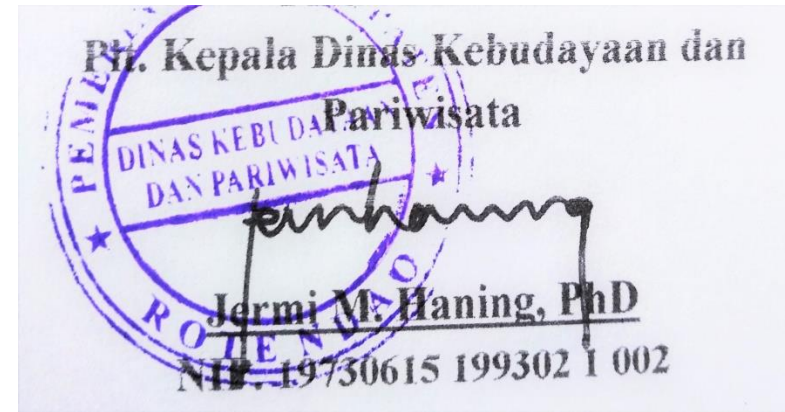 Plt. Kepala Dinas Kebudayaan dan
Pariwisata
DINAS KEBUDAYAAN
DAN PARIWISATA
ROTE NDAO
Jermi M. Haning, PhD
NIP. 19730615 199302 1 002